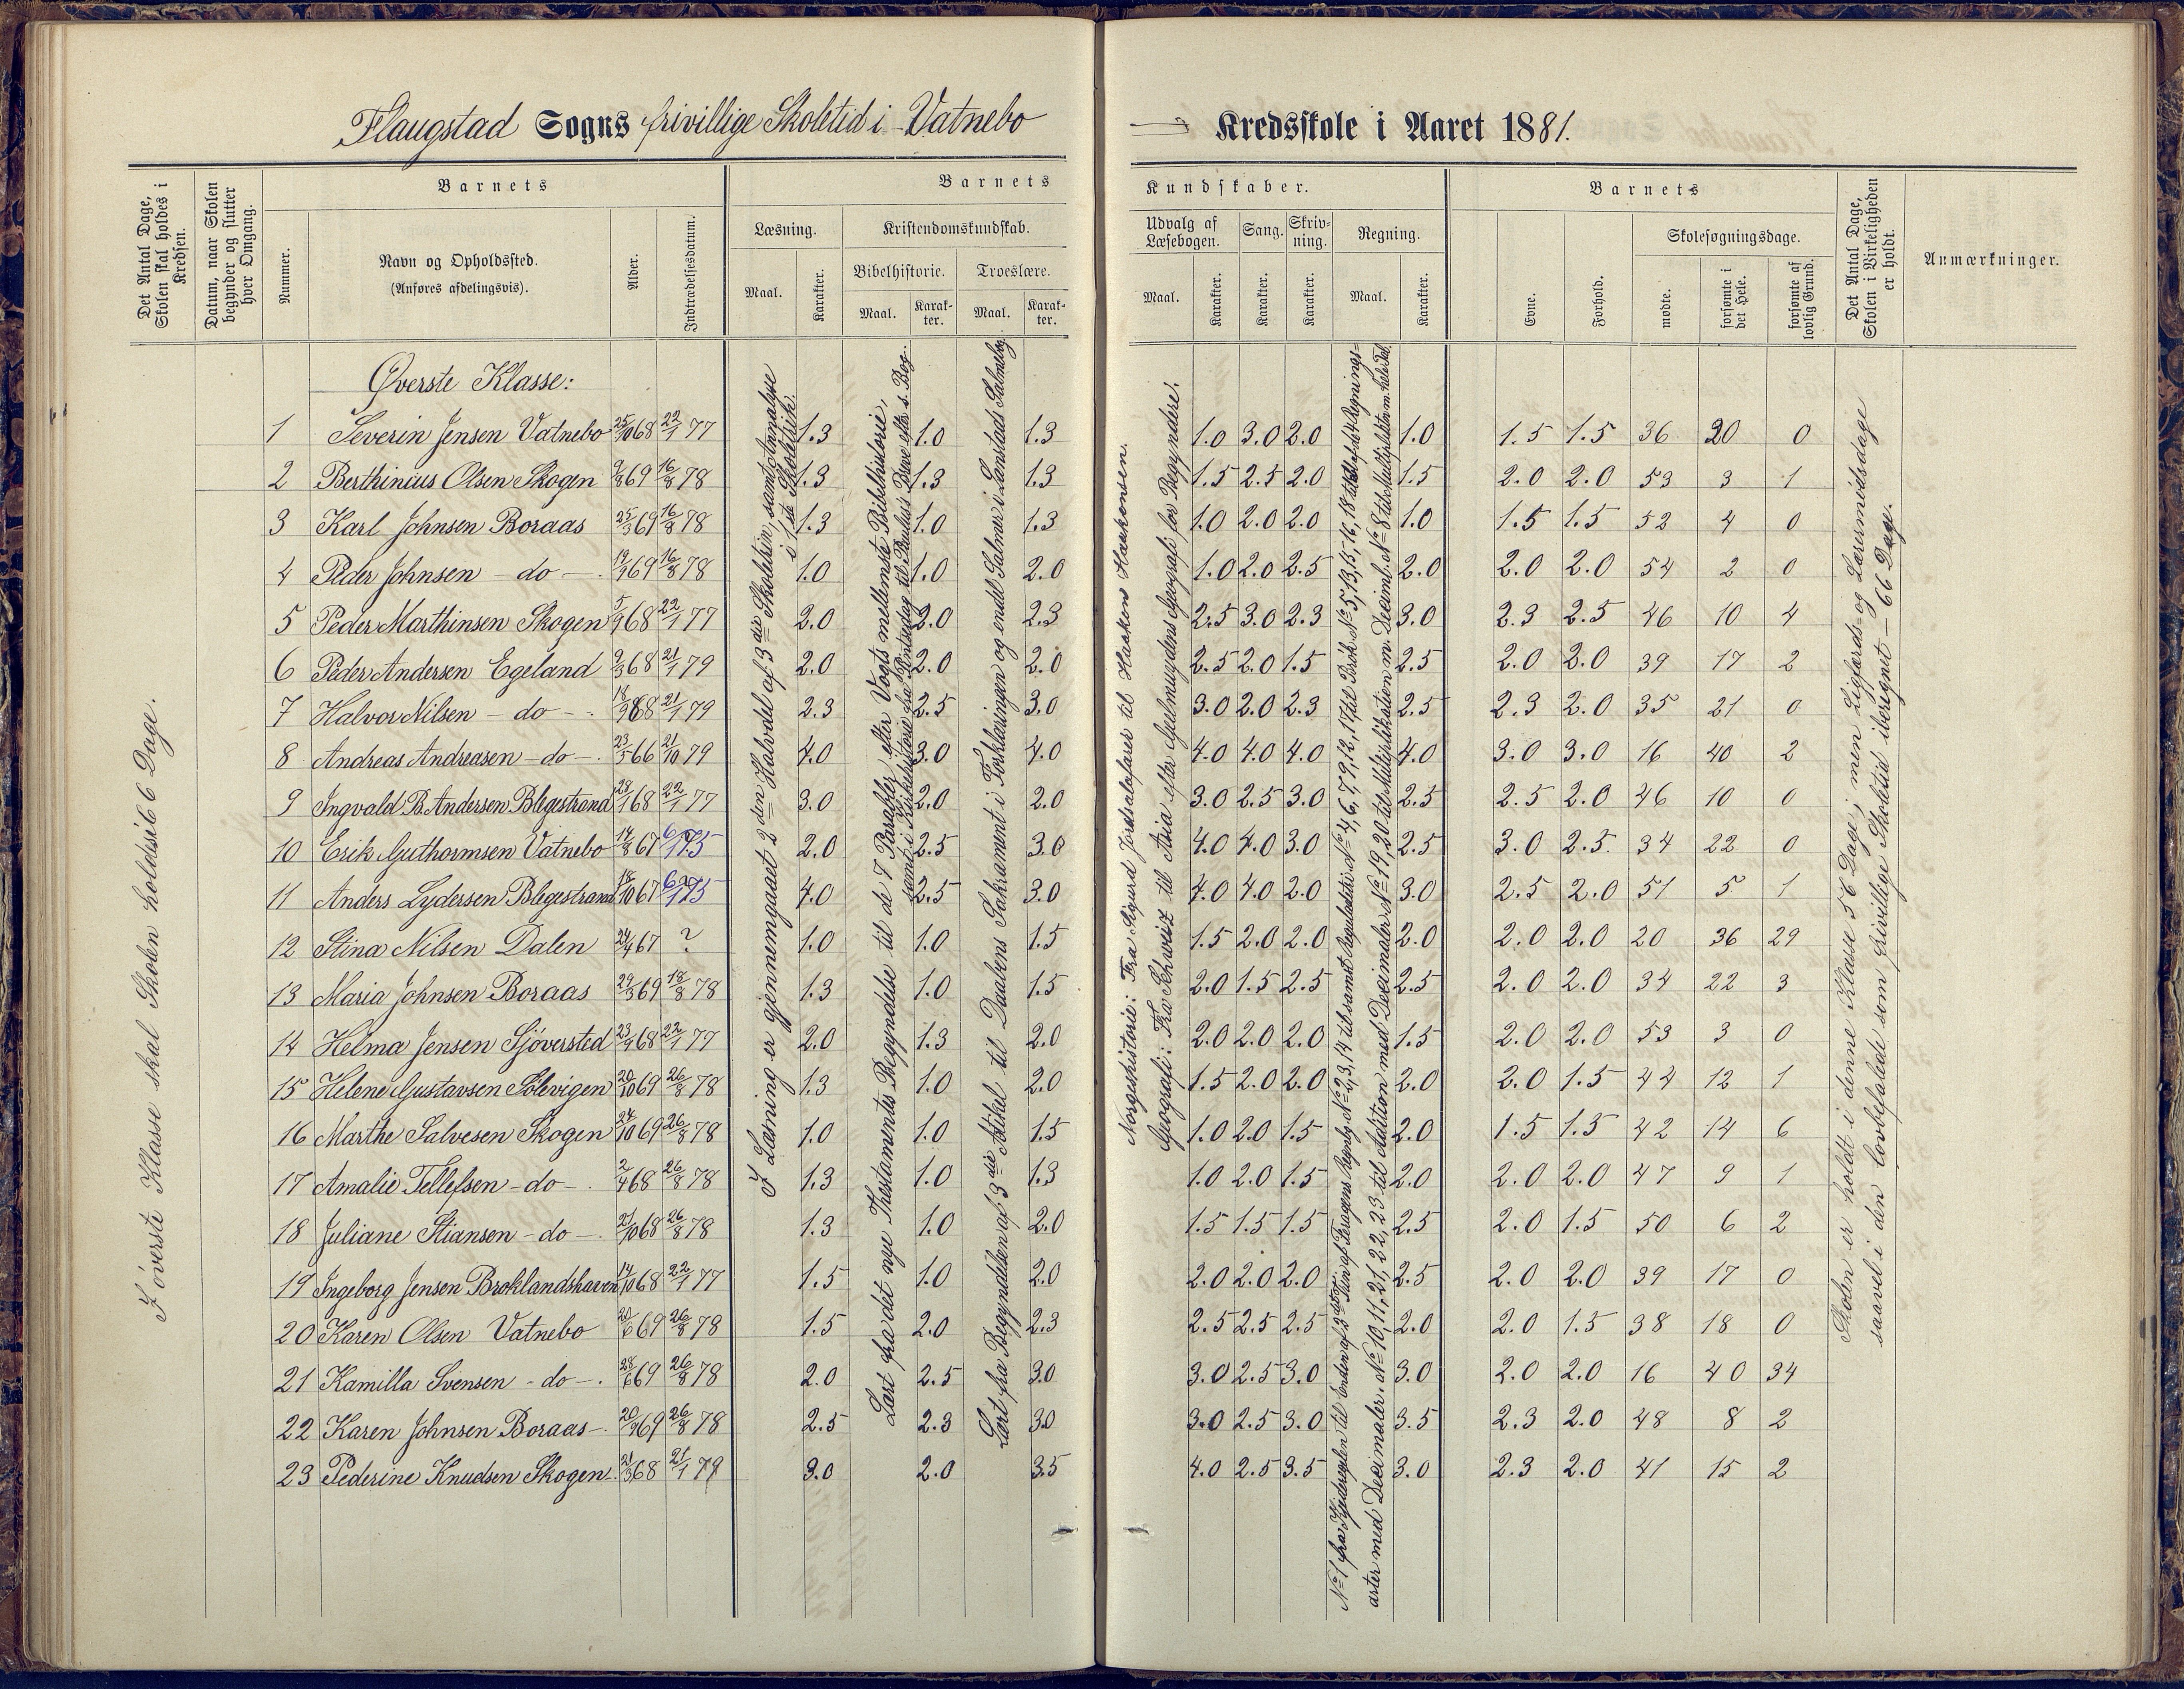 Flaugstad Sogns frivillige Skoletid i Vatnebo
Kredsskole i Aaret 1881.
Det Antal Dage, Skolen skal holdes i Kredsen.
Datum, naar Skolen begynder og slutter hver Omgang.
Nummer.
Barnets
Navn og Opholdssted.
(Anføres afdelingsvis).
Alder.
Indtrædelsesdatum.
Barnets
Læsning.
Maal.
Karakter.
Kristendomskundskab.
Bibelhistorie.
Maal.
Karakter.
Troeslære.
Maal.
Karakter.
Kundskaber.
Udvalg af Læsebogen.
Maal.
Karakter.
Sang.
Karakter.
Skrivning.
Karakter.
Regning.
Maal.
Karakter.
Barnets
Evne.
Forhold.
Skolesøgningsdage.
mødte.
forsømte i det Hele.
forsømte af lovlig Grund.
Det Antal Dage, Skolen i Virkeligheden er holdt.
Anmærkninger.
I øverste Klasse skal Skolen holdes i 66 Dage.
Øverste Klasse:
1 Severin Jensen Vatnebo 25/10 68 22/1 77 1.3 1.0 1.3 1.0 3.0 2.0 1.0 1.5 1.5 36 20 0
2 Berthinius Olsen Skogen 9/8 69 16/8 78 1.3 1.3 1.3 1.5 2.5 2.0 1.5 2.0 2.0 53 3 1
3 Karl Johnsen Boraas 25/3 69 16/8 78 1.3 1.0 1.3 1.0 2.0 2.0 1.0 1.5 1.5 52 4 0
4 Peder Johnsen - do - 69 16/8 78 1.0 1.0 2.0 1.0 2.0 2.5 2.0 2.0 2.0 54 2 0
5 Peder Marthinsen Skogen 68 22/1 77 2.0 2.0 2.3 2.5 3.0 2.3 3.0 2.3 2.5 46 10 4
6 Peder Andersen Egeland 9/3 68 21/1 79 2.0 2.0 2.0 2.5 2.0 1.5 2.5 2.0 2.0 39 17 2
7 Halvor Nilsen - do - 18/9 68 21/1 79 2.3 2.5 3.0 3.0 2.0 2.3 2.5 2.3 2.0 35 21 0
8 Andreas Andreasen - do - 23/5 66 21/10 79 4.0 3.0 4.0 4.0 4.0 4.0 4.0 3.0 3.0 16 40 2
9 Ingvald B. Andersen Blegestrand 28/1 68 22/1 77 3.0 2.0 2.0 3.0 2.5 3.0 2.5 2.5 2.0 46 10 0
10 Erik Guthormsen Vatnebo 14/8 67 6/1 75 2.0 2.5 3.0 4.0 4.0 3.0 2.5 3.0 2.5 34 22 0
11 Anders Lydersen Blegestrand 18/10 67 75 4.0 2.5 3.0 4.0 4.0 2.0 3.0 2.5 2.0 51 5 1
12 Stina Nilsen Dalen 24/4 67 ? 1.0 1.0 1.5 1.5 2.0 2.0 2.0 2.0 2.0 20 36 29
13 Maria Johnsen Boraas 29/3 69 18/8 78 1.3 1.0 1.5 2.0 1.5 2.5 2.5 2.0 2.0 34 22 3
14 Helma Jensen Sjöversted 68 22/1 77 2.0 1.3 2.0 2.0 2.0 2.0 1.5 2.0 2.0 53 3 0
15 Helene Gustavsen Solevigen 20/10 69 26/8 78 1.3 1.0 2.0 1.5 2.0 2.0 2.0 2.0 1.5 44 12 1
16 Marthe Salvesen Skogen 24/10 69 26/8 78 1.0 1.0 1.5 1.0 2.0 1.5 2.0 1.5 1.5 42 14 6
17 Amalie Tellefsen - do - 2/4 68 26/8 78 1.3 1.0 1.3 1.0 2.0 1.5 2.0 2.0 2.0 47 9 1
18 Juliane Stiansen - do - 21/10 68 26/8 78 1.3 1.0 2.0 1.5 1.5 1.5 2.5 2.0 1.5 50 6 2
19 Ingeborg Jensen Broklandshaven 14/10 68 22/1 77 1.5 1.0 2.0 2.0 2.0 2.0 2.5 2.0 2.0 39 17 0
20 Karen Olsen Vatnebo 20/6 69 26/8 78 1.5 2.0 2.3 2.5 2.5 2.5 2.0 2.0 1.5 38 18 0
21 Kamilla Svensen - do - 28/6 69 26/8 78 2.0 2.5 3.0 3.0 2.5 3.0 3.0 2.0 2.0 16 40 34
22 Karen Johnsen Boraas 69 26/8 78 2.5 2.3 3.0 3.0 2.5 3.0 3.5 2.3 2.0 48 8 2
23 Pederine Knudsen Skogen 21/3 68 21/1 79 3.0 2.0 3.5 4.0 2.5 3.5 3.0 2.3 2.0 41 15 2
I Læsning er gjennemgaaet 2den Halvdel af 3die Skoletrin, samt Analyse
i 1ste Skoletrin.
Læst fra det nye Thestamentes Begyndelse til de 7 Parabler efter Vogts mellemste Bibelhistorie,
samt i Kirkehistorie fra Pintsedag til Paulus's Breve efter s. Bog.
Lært fra Begyndelsen af 3die Artikel til Daabens Sakrament i Forklaringen og endel Salmer i Landstads Salmebog.
Norgeshistorie: Fra Sigurd Jorsalafarer til Haakon Haakonsen.
Geografi: Fra Schweiz til Asia efter Geelmuydens Geografi for Begyndere.
Skolen er holdt i denne Klasse 56 Dage; men Ligfærds- og Læremødsdage
saavel i den lovbefalede som frivillige Skoletid iberegnet — 66 Dage.